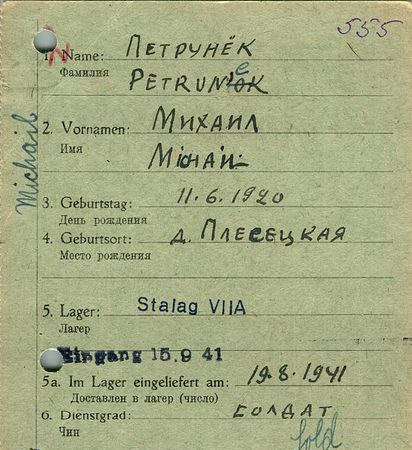 555
N
1. Name: ПЕТРУНЁК
Фамилия PETRUNEOK
2. Vornamen: МИХАИЛ
Имя MICHAIL
Michail
3. Geburtstag: 11.6.1920
День рождения
4. Geburtsort: д. ПЛЕСЕЦКАЯ
Место рождения
5. Lager: Stalag VIIA
Лагер
Eingang 15.9 41
5a. Im Lager eingeliefert am: 19.8.1941
Доставлен в лагер (число)
6. Dienstgrad: СОЛДАТ
Чин Sold